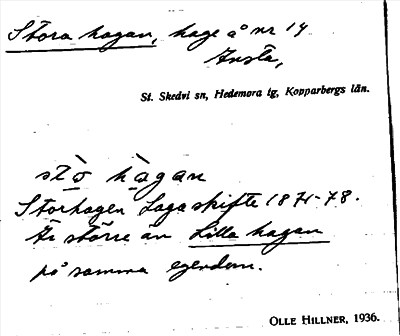 Stora hagan, hage å nr 14
Ansta,
St. Skedvi sn, Hedemora tg, Kopparbergs län.
stò hàgan
Storhagen Laga skifte 1871-78.
Är större än Lilla hagan
på samma egendom.
OLLE HILLNER, 1936.